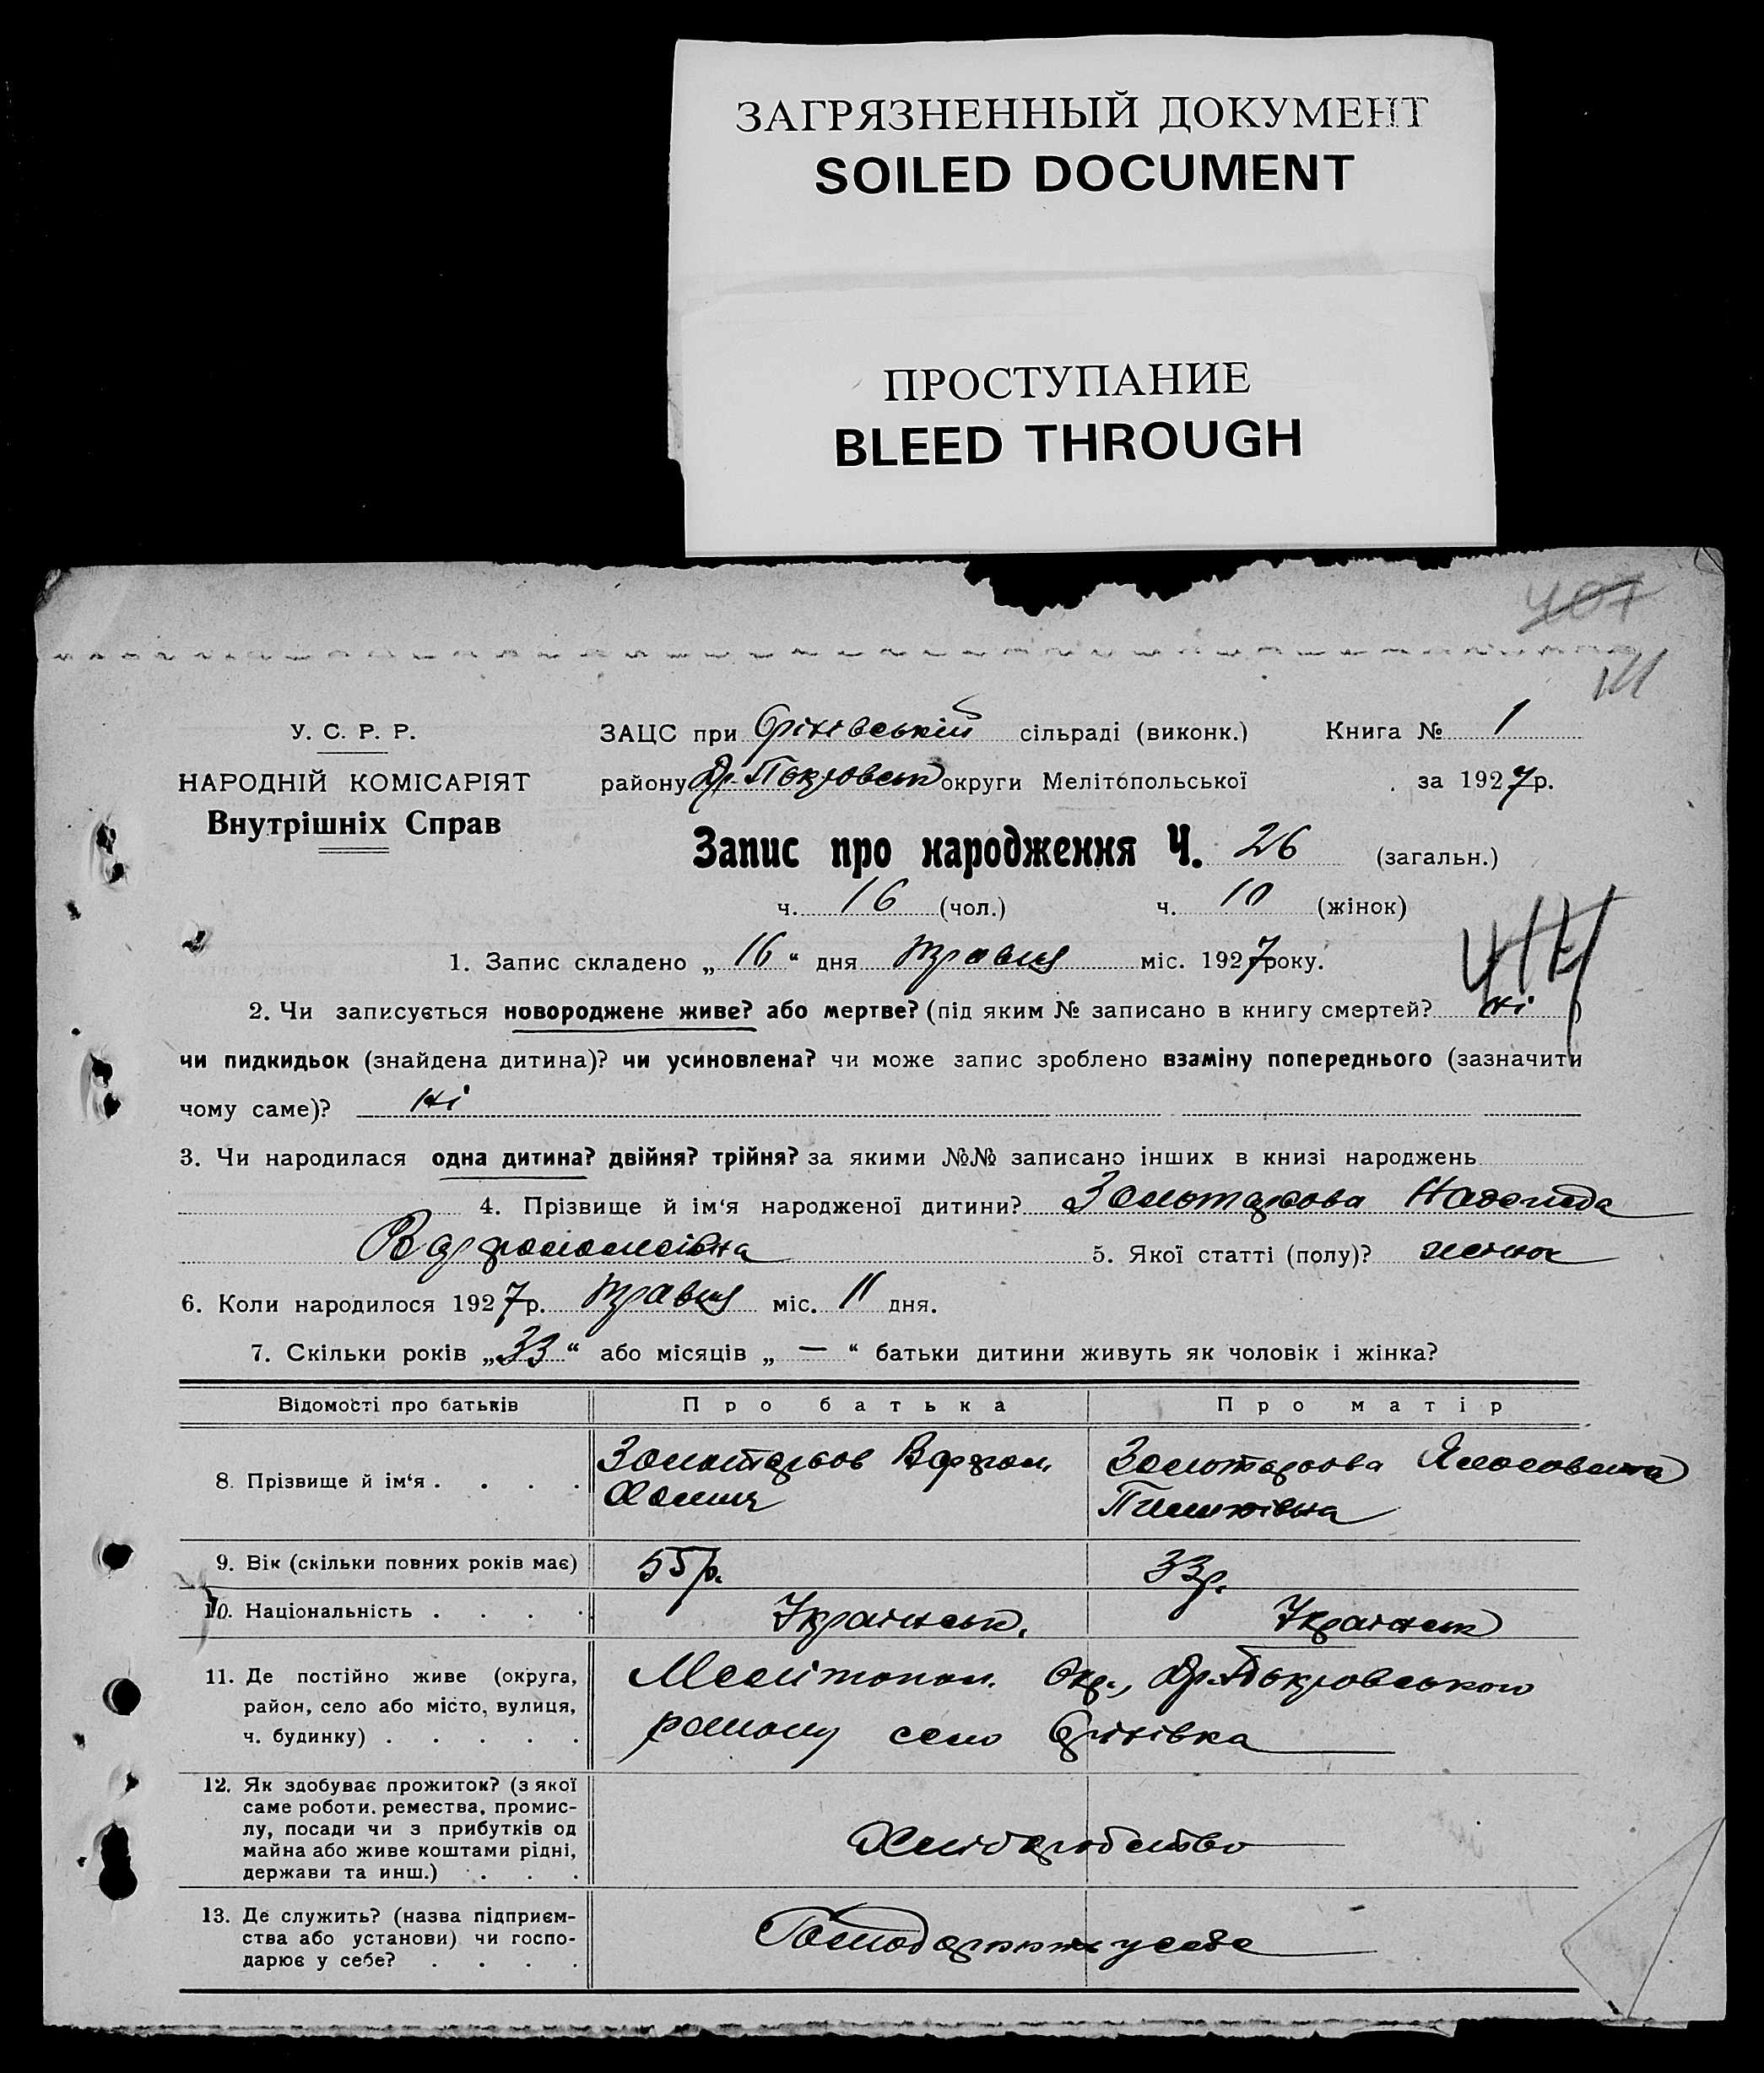 ЗАГРЯЗНЕННЫЙ ДОКУМЕНТ
SOILED DOCUMENT
ПРОСТУПАНИЕ
BLEED THROUGH
407
У. С. Р. Р.
НАРОДНІЙ КОМІСАРІЯТ
Внутрішніх Справ
ЗАЦС при сільраді (виконк.) Книга № 1
району округи Мелітопольської за 1927р.
Запис про народження Ч. 26 (загальн.)
ч. 16 (чол.) ч. 10 (жінок)
1. Запис складено „ 16 “ дня травня міс. 1927 року.
2. Чи записується новороджене живе? або мертве? (під яким № записано в книгу смертей? ні )
чи пидкидьок (знайдена дитина)? чи усиновлена? чи може запис зроблено взаміну попереднього (зазначити
чому саме)? ні
3. Чи народилася одна дитина? двійня? трійня? за якими №№ записано інших в книзі народжень
4. Прізвище й ім‘я народженої дитини? Золотарьова Надежда
5. Якої статті (полу)? жінок
6. Коли народилося 1927р. травня міс. 11 дня.
7. Скільки років „33“ або місяців „ — “ батьки дитини живуть як чоловік і жінка?
Відомості про батьків Про батька Про матір
8. Прізвище й ім‘я . . . . Золотарьов Золотарьова
9. Вік (скільки повних років має) 55р. 33р.
10. Національність . . . . Українськ. Українськ
11. Де постійно живе (округа,
район, село або місто, вулиця,
ч. будинку) . . . . .
Мелітопол. Окр.,
району село
12. Як здобуває прожиток? (з якої
саме роботи, ремества, промис-
лу, посади чи з прибутків од
майна або живе коштами рідні,
держави та инш.) . . .
Хліборобство
13. Де служить? (назва підприєм-
ства або установи) чи госпо-
дарює у себе? . . . .
Господарюють у себе